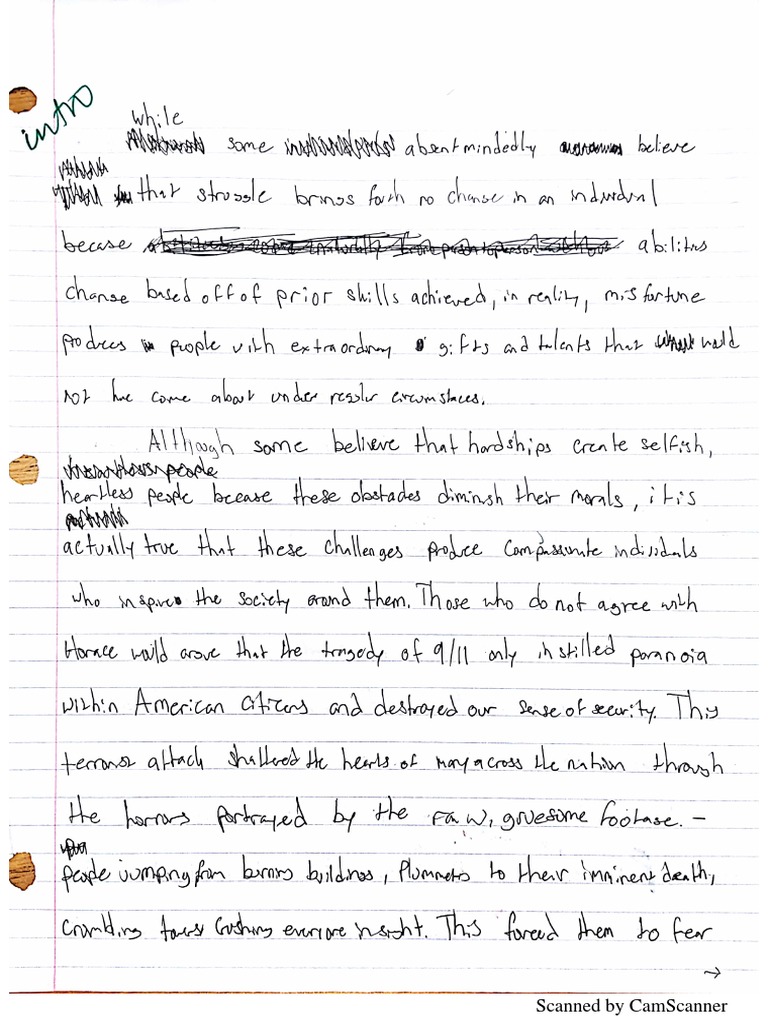 intro
while
some absentmindedly believe
that struggle brings forth no change in an individual
becase abilities
change based off of prior skills achieved, in reality, misfortune
produces people with extraordinary gifts and talents that would
not have come about under regular circumstaces.
Although some believe that hardships create selfish,
heartless people because these obstacles diminish their morals, it is
actually true that these challenges produce compassionate individuals
who inspire the society around them. Those who do not agree with
Horace would argue that the tragedy of 9/11 only instilled paranoia
within American citizens and destroyed our sense of security. This
terrorist attack shattered the hearts of many across the nation through
the horrors portrayed by the raw, gruesome footage. –
people jumping from burning buildings, plummeting to their imminent death,
crumbling towers crushing everyone insight. This forced them to fear
→
Scanned by CamScanner